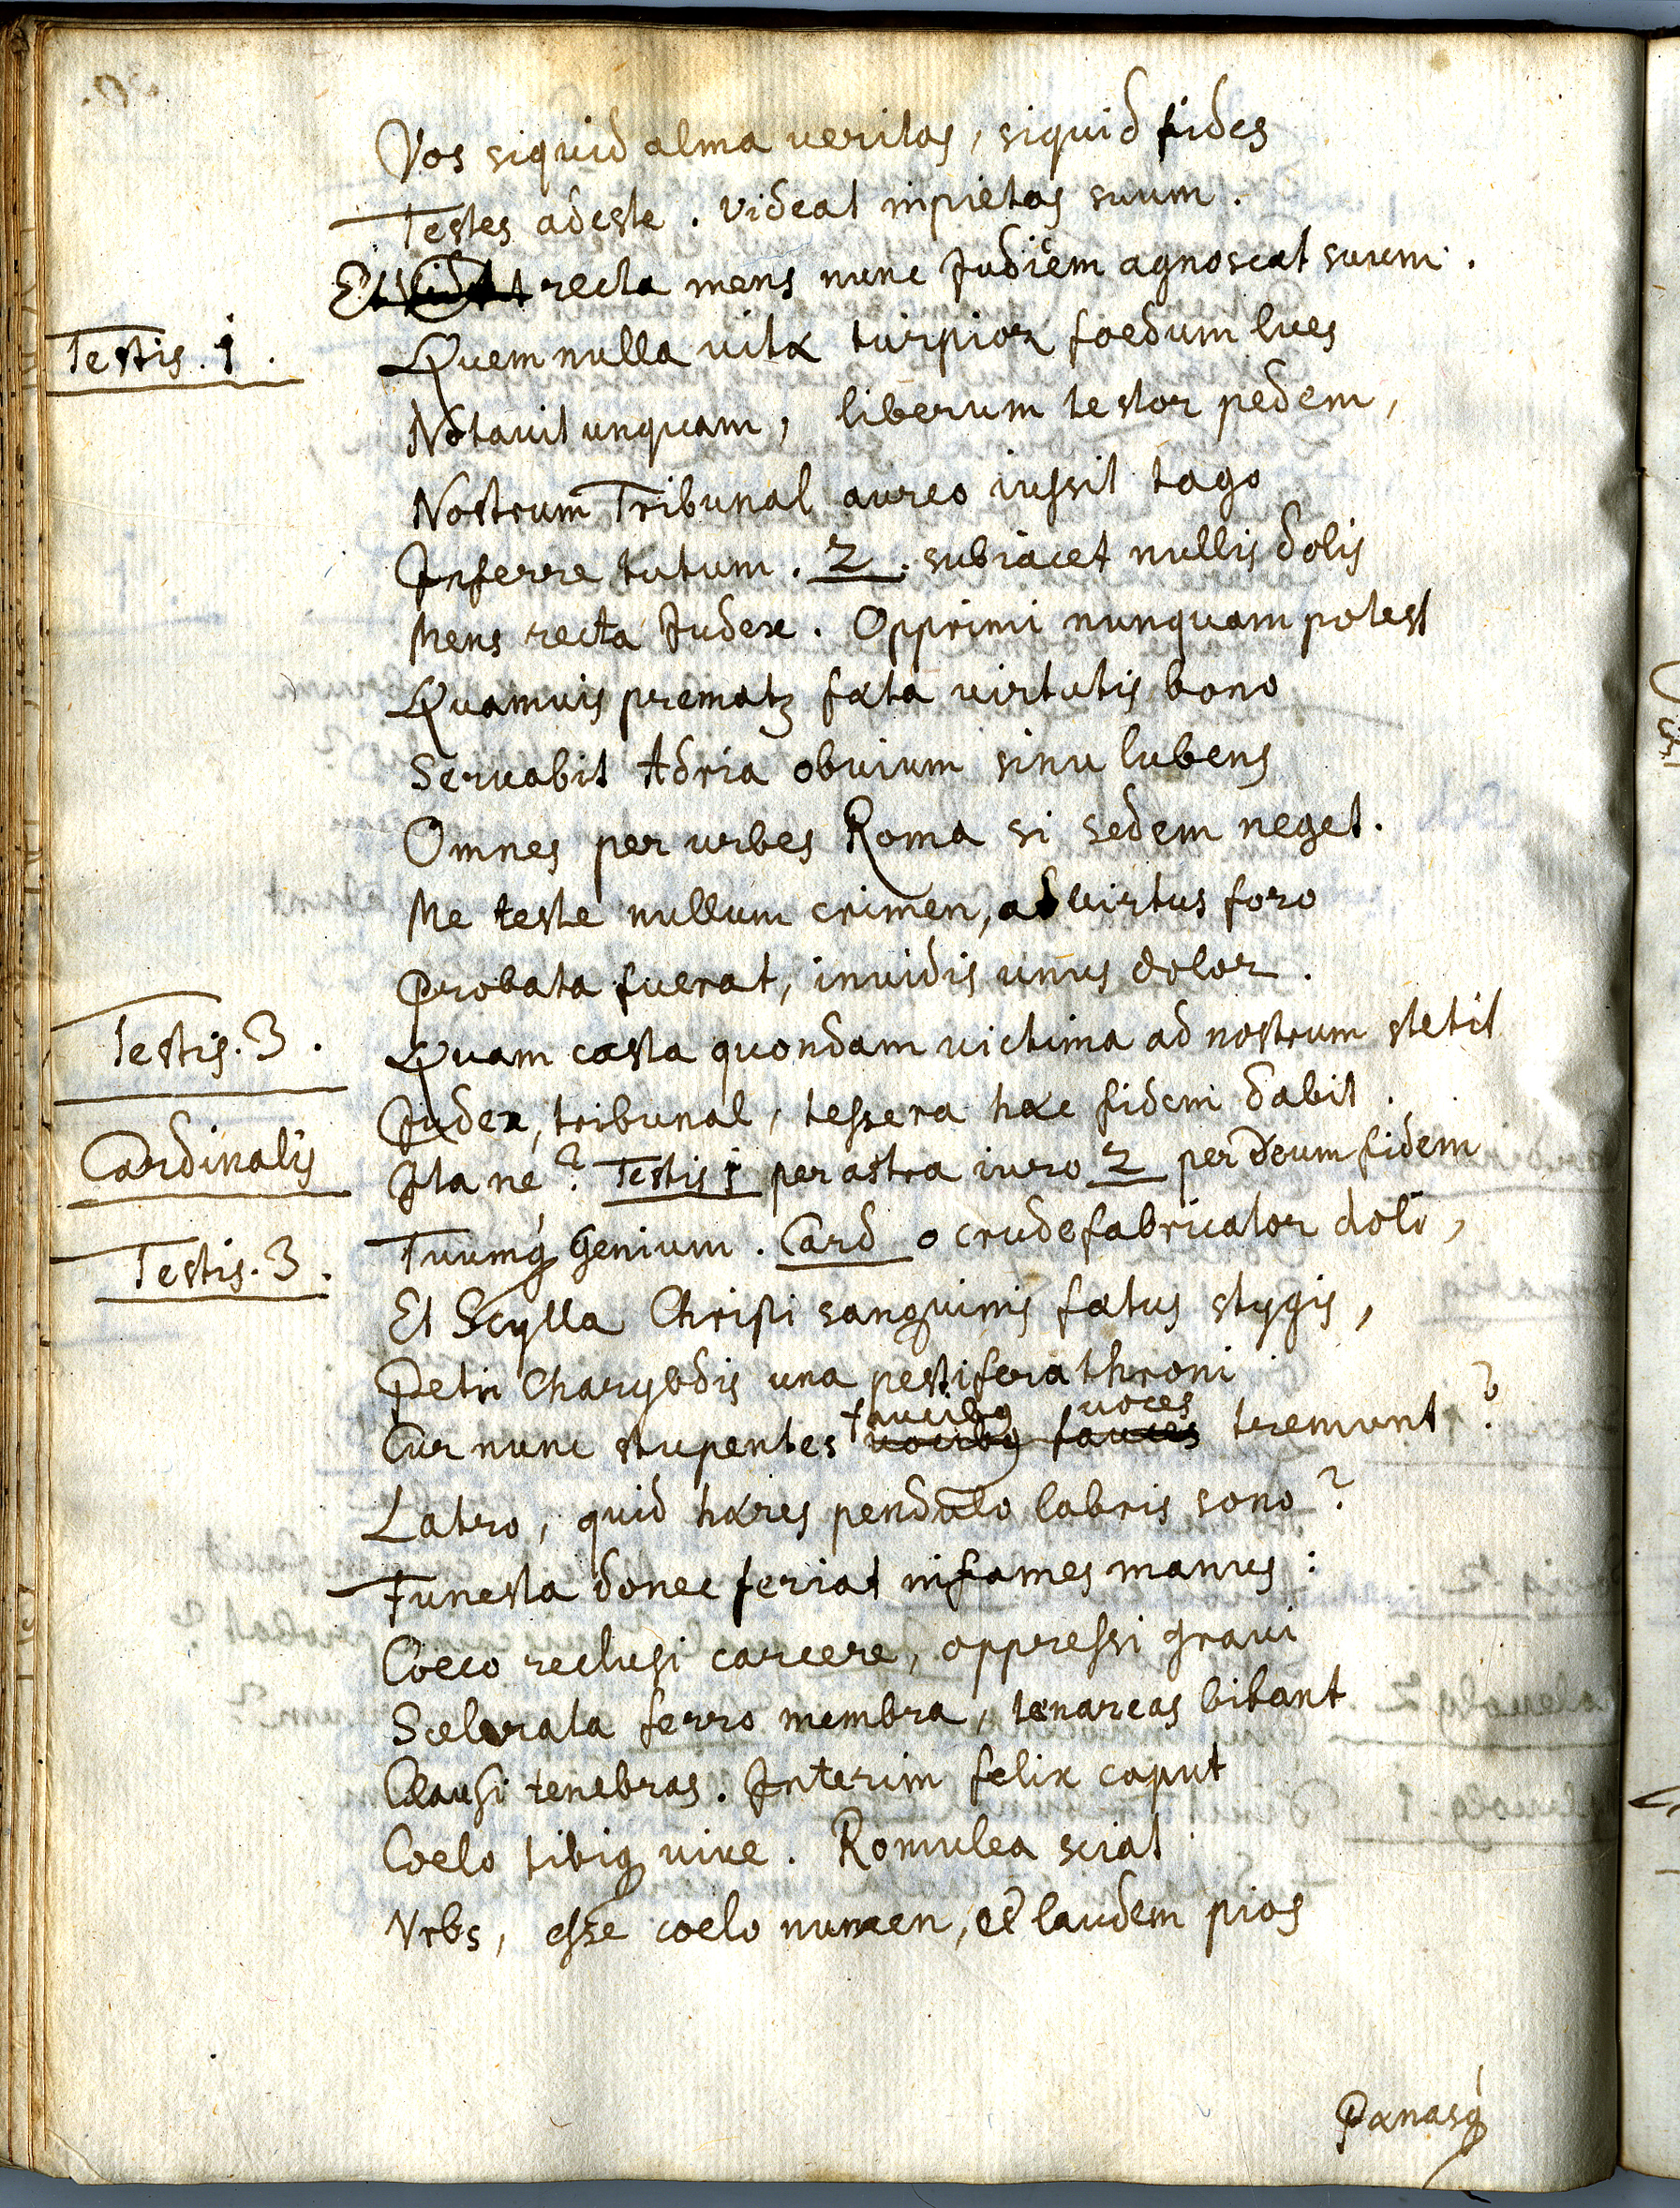 Vos siquid alma veritas, siquid fides
Testes adeste. videat inpietas suum.
Et recta mens nunc Judicem agnoscat suum.
Testis. 1.
Quem nulla vitæ turpior foedum lues
Notavit unquam, liberum testor pedem,
Nostrum Tribunal aureo iussit tago
Inferre tutum. 2. subiacet nullis dolis
Mens recta Judex. Opprimi nunquam potest
Quamvis prematz fata virtutis bono
Servabit Adria obvium sinu lubens
Omnes per urbes Roma si sedem neget.
Me teste nullum crimen, ad virtus foro
Probata fuerat, invidis unus dolor.
Testis. 3.
Quam casta quondam victima ad nostrum stetit
Judex, tribunal, tessera hæc fidem dabit.
Cardinalis
Ita né? Testis 1 per astra iuro 2 per Deum fidem
Testis. 3.
Tuumq́ Genium. Card o crude fabricator doli,
Et Scylla Christi sanguinis fætus stygis,
Petri Charybdis una pestifera throni
faucibq voces
Cur nunc stupentes vocibq fauces tremunt?
Latro, quid hæres pendulo labris sono?
Funesta donec feriat infames manus:
Coeco reclusi carcere, oppressi gravi
Scelerata ferro membra, tænareas bibant
Clausi tenebras. Interim felix caput
Coelo tibiq vive. Romulea sciat
Vrbs, esse coelo numen, et laudem pios
Pænasq́